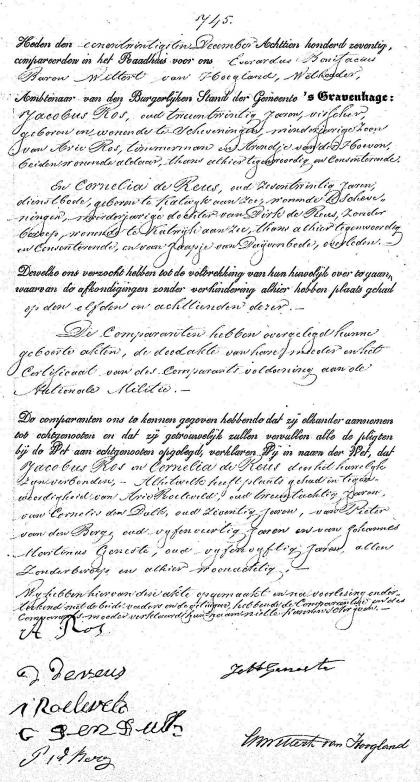 745.
Heden den eenentwintigsten December Achttien honderd zeventig,
compareerden in het Raadhuis voor ons Everardus Bonifacius
Baron Wittert van Hoogland, Wethouder,
Ambtenaar van den Burgerlijken Stand der Gemeente 's Gravenhage:
Jacobus Ros, oud Jaren, visscher,
geboren en wonende te Scheveningen, minderjarige zoon
van Arie Ros, timmerman en van der
beiden wonende aldaar, thans alhier tegenwoordig en Consenteerende.
En Cornelia de Reus, oud zeventwintig Jaren,
dienstbode, geboren te Katwijk aan Zee, wonende te Scheve-
ningen, meerderjarige dochter van Dirk de Reus, zonder
beroep, wonende te Katwijk aan Zee, thans alhier tegenwoordig
en Consenteerende, en van overleden. —
Dewelke ons verzocht hebben tot de voltrekking van hun huwelijk over te gaan,
waarvan de afkondigingen zonder verhindering alhier hebben plaats gehad
op den elfden en achttienden dezer. —
De Comparanten hebben overgelegd hunne
geboorte akten, de doodakte van hare moeder en het
Certificaat van des Comparants voldoening aan de
Nationale Militie. —
De comparanten ons te kennen gegeven hebbende dat zij elkander aannemen
tot echtgenooten en dat zij getrouwelijk zullen vervullen alle de pligten
bij de Wet aan echtgenooten opgelegd, verklaren Wij in naam der Wet, dat
Jacobus Ros en Cornelia de Reus door het huwelijk
zijn verbonden. — Alhetwelk heeft plaats gehad in tegen-
woordigheid van Arie Roeleveld, oud Jaren,
van Cornelis den Dulk, oud Jaren, van Pieter
van den Berg, oud vijfenveertig Jaren en van Johannes
Martinus Geneste, oud vijfenvijftig Jaren, allen
Zonder beroep en alhier woonachtig. —
Wij hebben hiervan deze akte opgemaakt en na voorlezing onder-
teekend met de beide vaders en de getuigen, hebbende de Comparanten en des
Comparants moeder verklaard hun naam niet te kunnen schrijven. —
A Ros
d deReus
JMGeneste
A Roeleveld
C Den Dulk
P v d Berg
Wittert van Hoogland